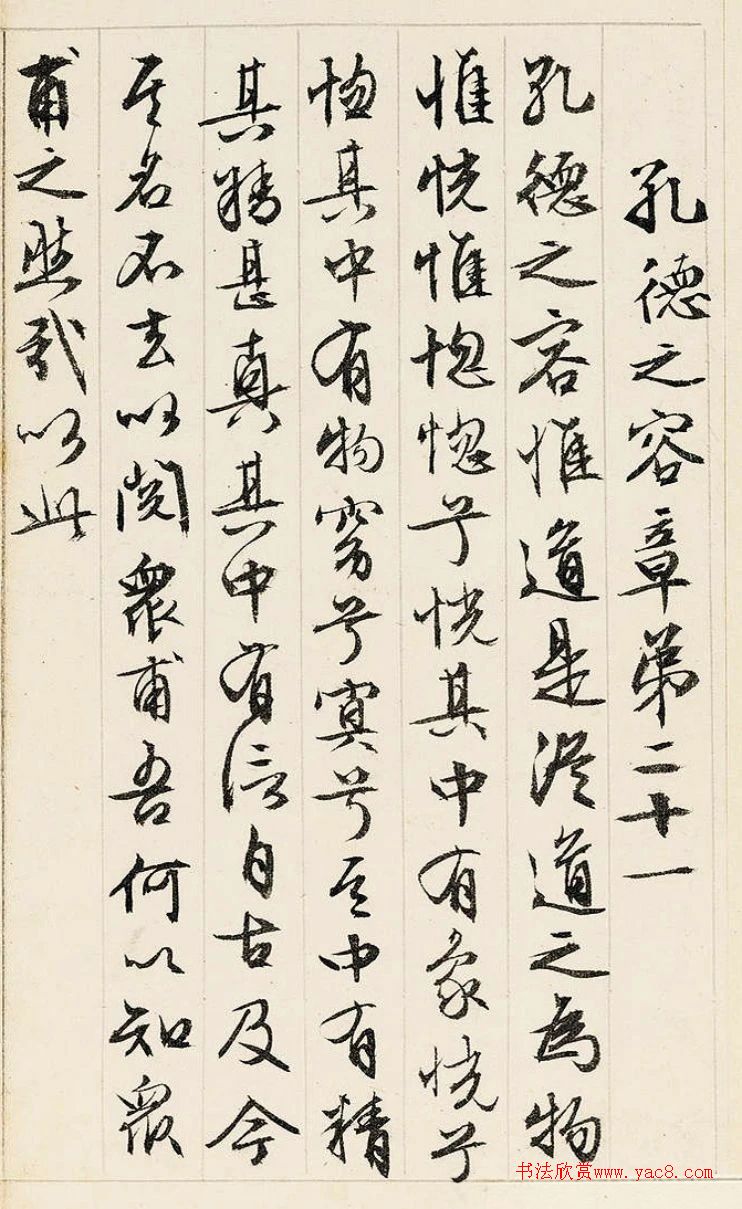 孔德之容章弟二十一
孔德之容惟道是從道之為物
惟恍惟惚惚兮恍其中有象恍兮
惚其中有物窈兮冥兮其中有精
其精甚真其中有信自古及今
其名不去以閱衆甫吾何以知衆
甫之然哉以此
书法欣赏www.yac8.com